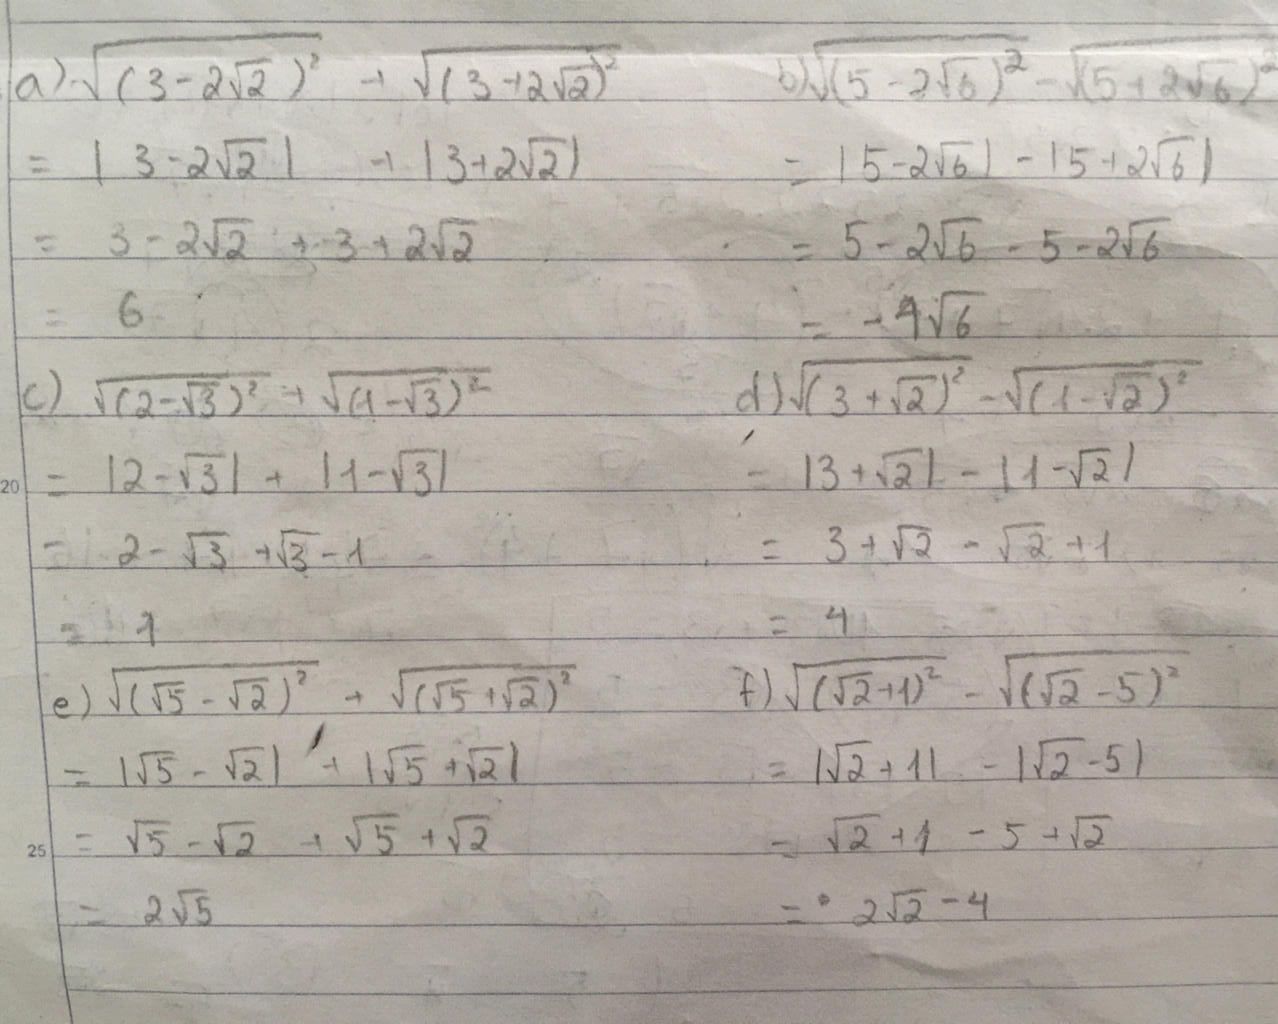 a) √(3-2√2)² + √(3+2√2)²
= |3-2√2| + |3+2√2|
= 3-2√2 + 3+2√2
= 6
b) √(5-2√6)² - √(5+2√6)²
= |5-2√6| - |5+2√6|
= 5-2√6 - 5-2√6
= -4√6
c) √(2-√3)² + √(1-√3)²
20 = |2-√3| + |1-√3|
= 2-√3 + √3-1
= 1
d) √(3+√2)² - √(1-√2)²
= |3+√2| - |1-√2|
= 3+√2 - √2+1
= 4
e) √(√5-√2)² + √(√5+√2)²
= |√5-√2| + |√5+√2|
25 = √5-√2 + √5+√2
= 2√5
f) √(√2+1)² - √(√2-5)²
= |√2+1| - |√2-5|
= √2+1 - 5+√2
= 2√2-4